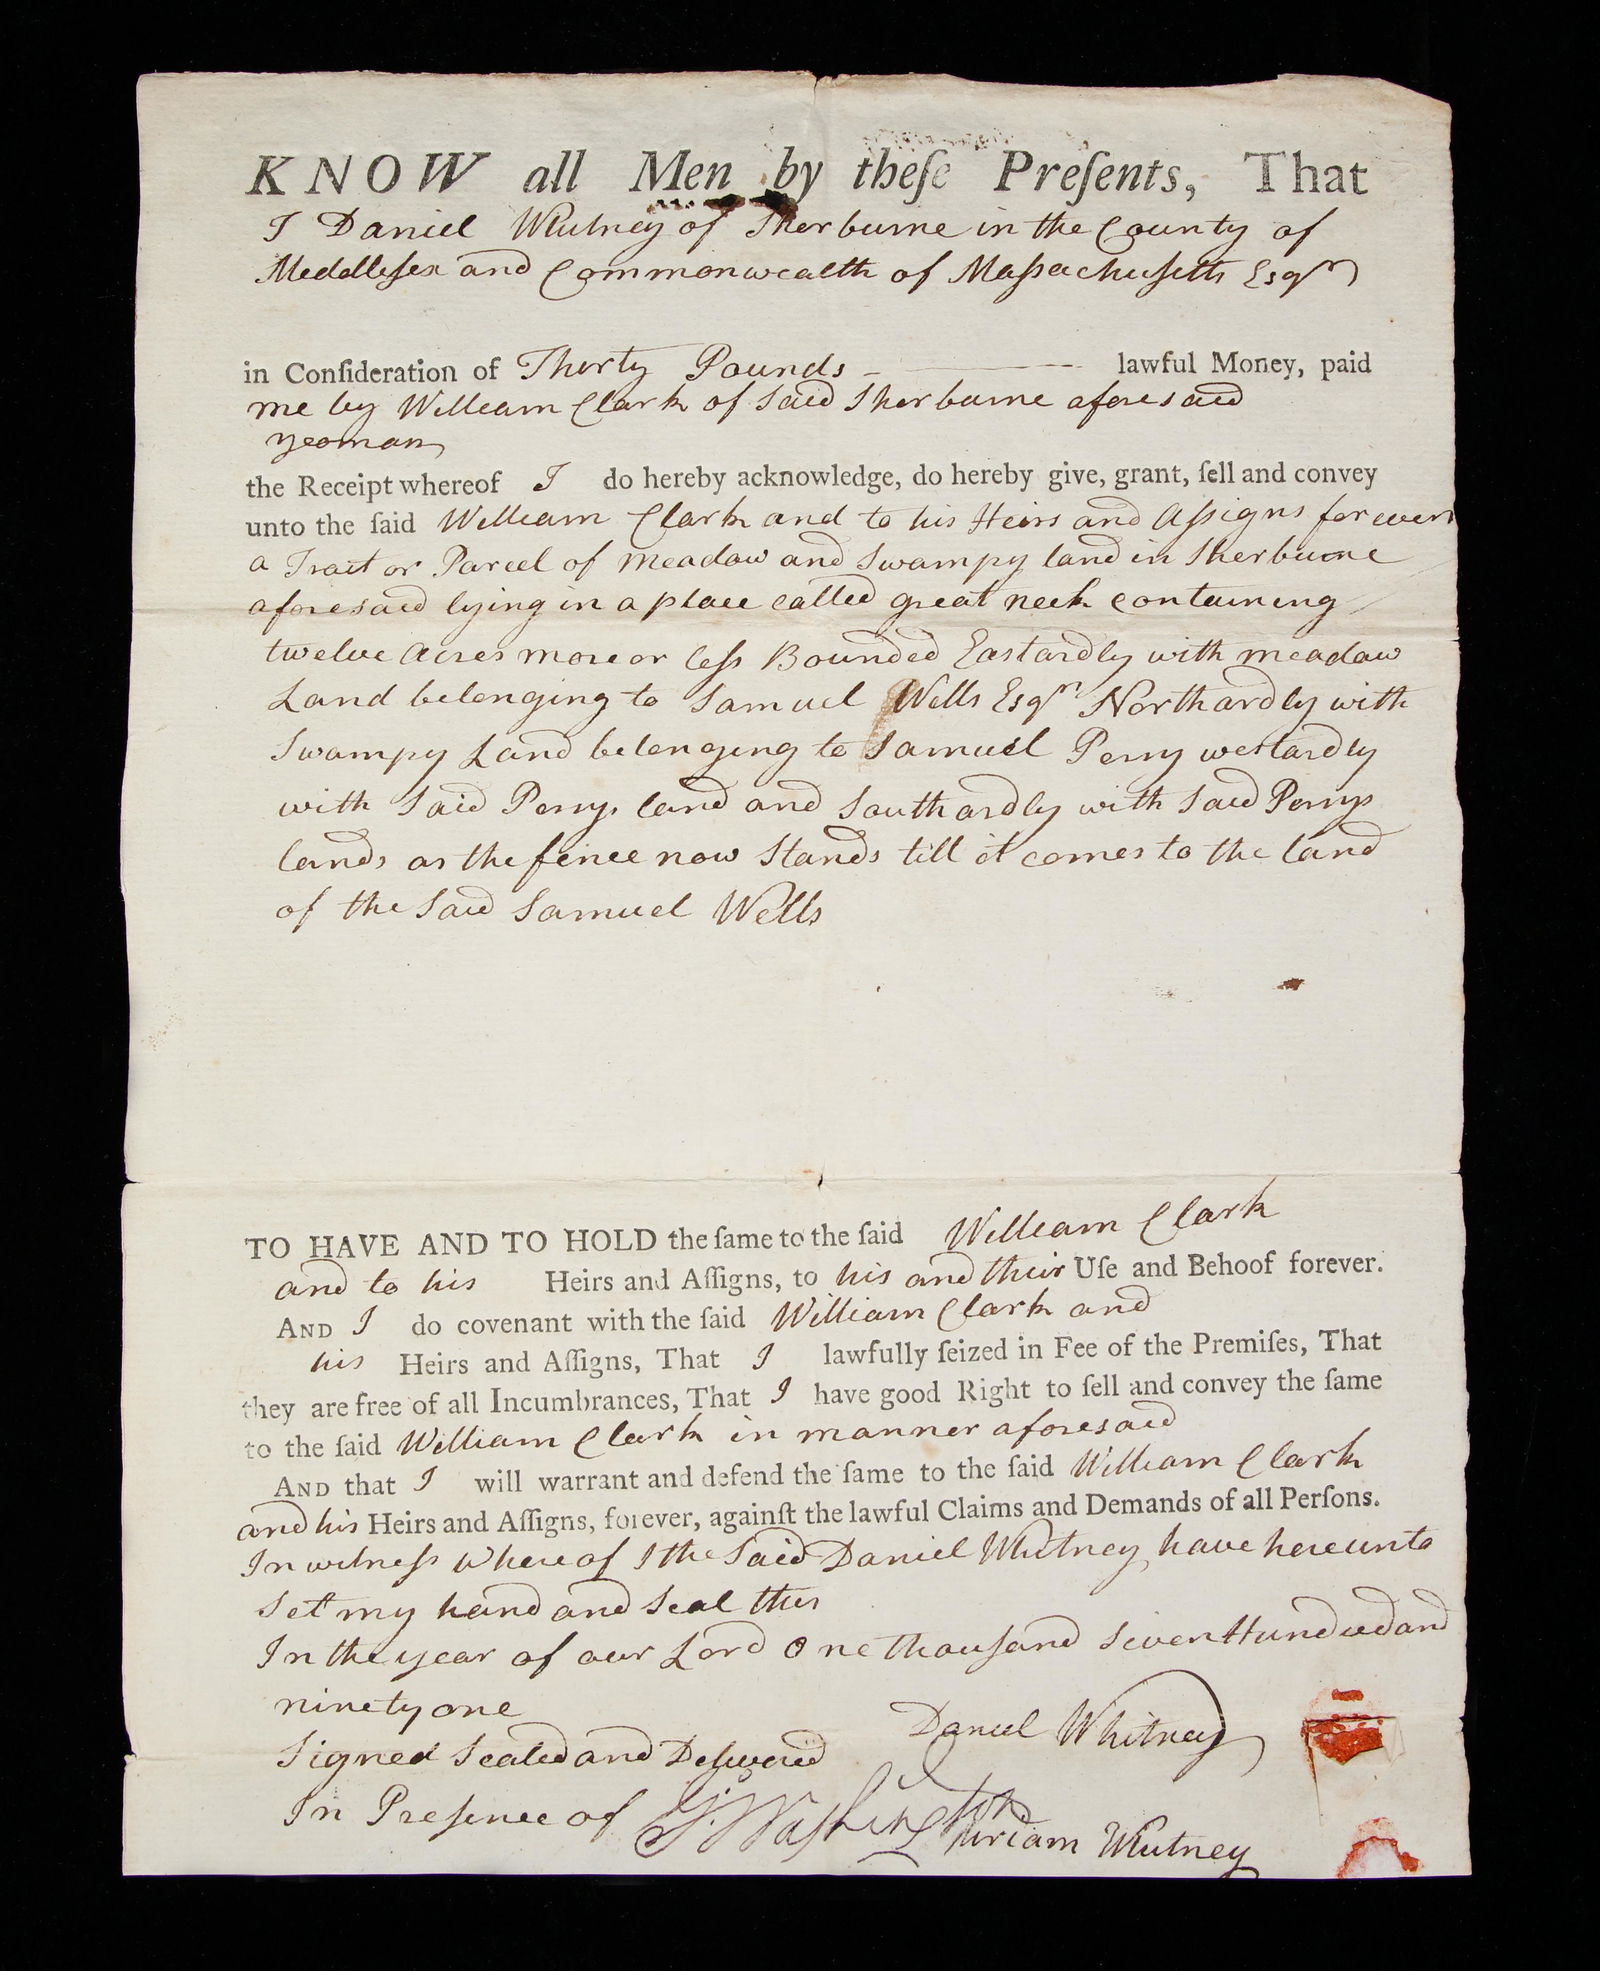 KNOW all Men by theſe Preſents, That
I Daniel Whitney of Sherburne in the County of
Meddlesex and Commonwealth of Massachusetts Esqr
in Conſideration of Thirty Pounds lawful Money, paid
me by William Clark of said Sherburne aforesaid
yeoman
the Receipt whereof I do hereby acknowledge, do hereby give, grant, ſell and convey
unto the ſaid William Clark and to his Heirs and Assigns forever
a Tract or Parcel of meadow and Swampy land in Sherburne
aforesaid lying in a place called great neck containing
twelve Acres more or less Bounded Eastardly with meadow
Land belonging to Samuel Wells Esqr Northardly with
Swampy Land belonging to Samuel Perry westardly
with Said Perrys land and Southardly with Said Perrys
lands as the fence now Stands till it comes to the land
of the Said Samuel Wells
TO HAVE AND TO HOLD the ſame to the ſaid William Clark
and to his Heirs and Aſſigns, to his and their Uſe and Behoof forever.
AND I do covenant with the ſaid William Clark and
his Heirs and Aſſigns, That I lawfully ſeized in Fee of the Premiſes, That
they are free of all Incumbrances, That I have good Right to ſell and convey the ſame
to the ſaid William Clark in manner aforesaid
AND that I will warrant and defend the ſame to the ſaid William Clark
and his Heirs and Aſſigns, forever, againſt the lawful Claims and Demands of all Perſons.
In witness whereof I the Said Daniel Whitney have hereunto
Set my hand and Seal this
In the year of our Lord One thousand Seven Hundred and
ninety one
Daniel Whitney
Signed Sealed and Delivered
In Presence of G. Washington
Miriam Whitney